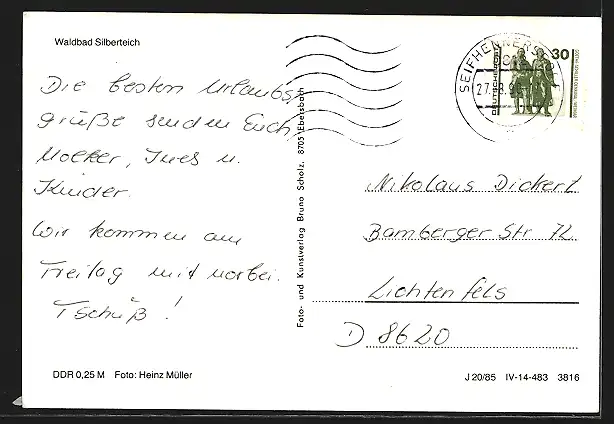 Waldbad Silberteich
Die besten Urlaubs-
grüße senden Euch
Volker, Ines u.
Kinder.
Wir kommen am
Freitag mit vorbei.
Tschüß!
DDR 0,25 M Foto: Heinz Müller
Foto- und Kunstverlag Bruno Scholz, 8705 Ebersbach
SEIFHENNERSDORF
DEUTSCHE POST
30
Nikolaus Dickert
Bamberger Str 72
Lichtenfels
D 8620
J 20/85 IV-14-483 3816